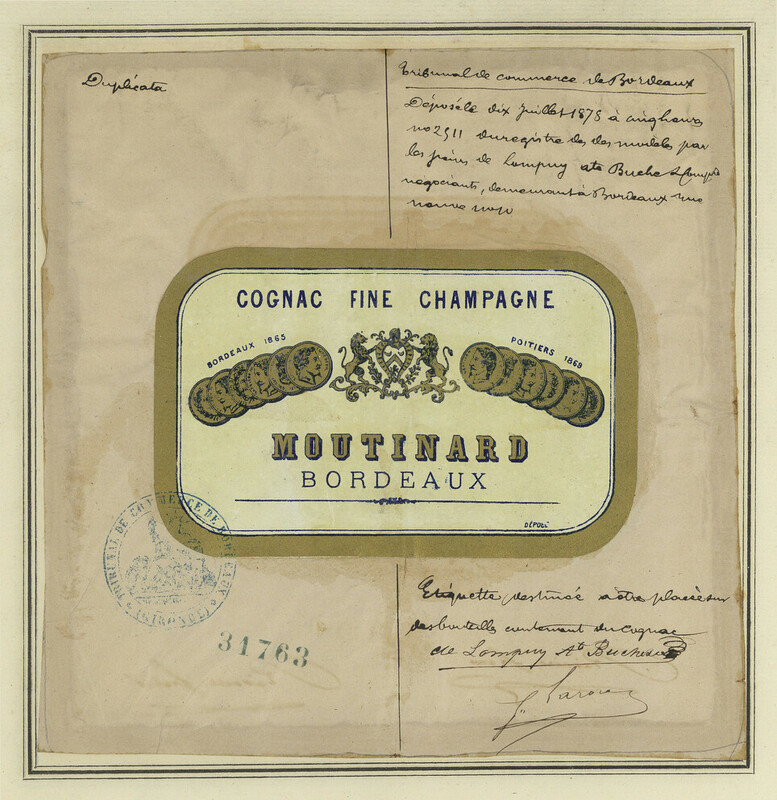 Duplicata
Tribunal de commerce de Bordeaux
Déposé le dix Juillet 1878 à cinq heures
no 2511 du registre des modèles par
de Lompuy Ate Buche & Compie
négociants, demeurant à Bordeaux rue
COGNAC FINE CHAMPAGNE
BORDEAUX 1865
POITIERS 1869
MOUTINARD
BORDEAUX
DÉPOSÉ
TRIBUNAL DE COMMERCE DE BORDEAUX
(GIRONDE)
31763
Etiquette destinée à être placée sur
des bouteilles contenant du cognac
de Lompuy Ate Buche